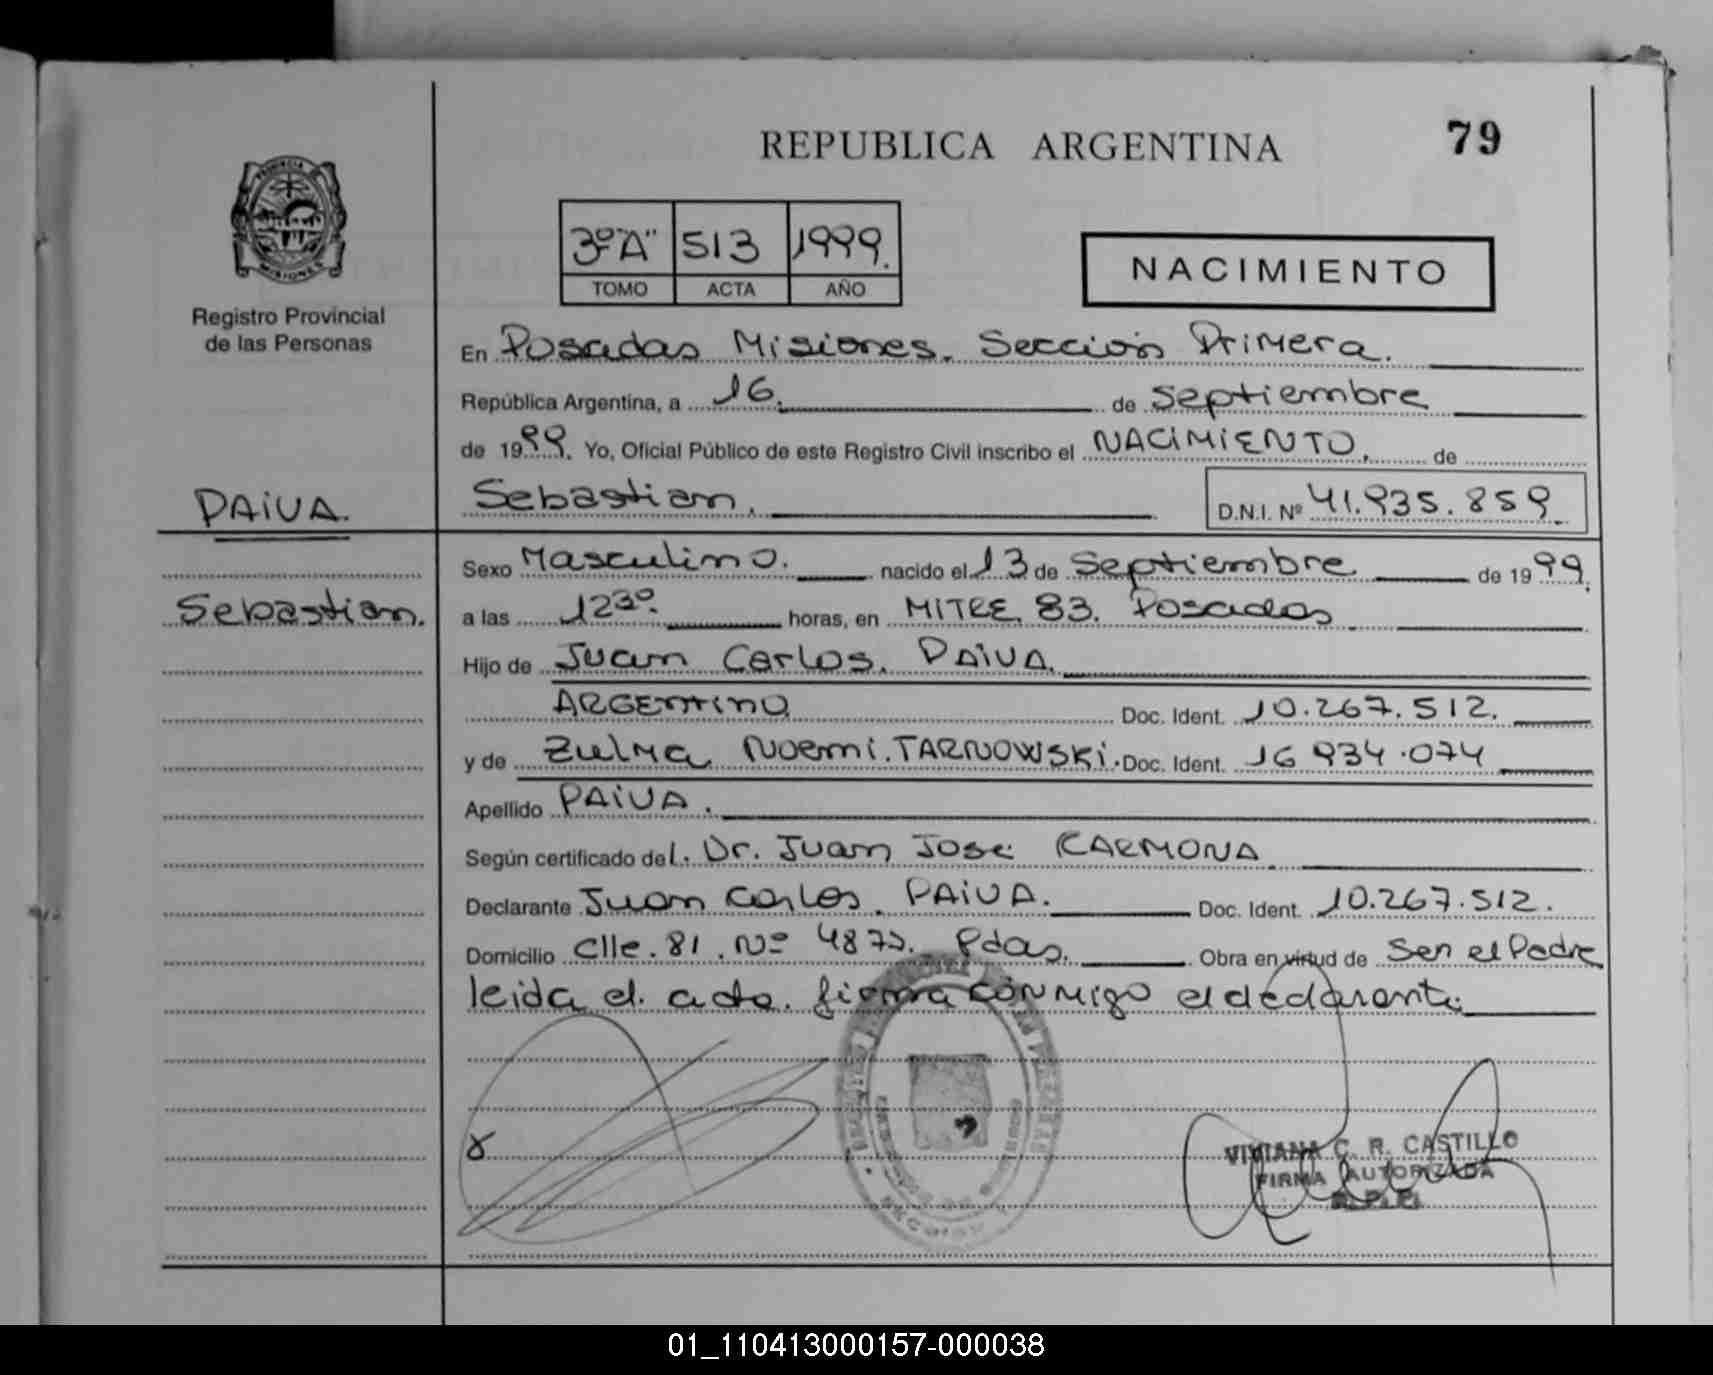 REPUBLICA ARGENTINA
79
PROVINCIA DE
MISIONES
Registro Provincial
de las Personas
3º"A" 513 1999.
TOMO ACTA AÑO
NACIMIENTO
En Posadas Misiones. Sección Primera.
República Argentina, a 16. de Septiembre
de 1999. Yo, Oficial Público de este Registro Civil inscribo el NACIMIENTO. de
PAIVA.
Sebastian.
Sebastian. D.N.I. Nº 41.935.859
Sexo Masculino. nacido el 13 de Septiembre de 1999.
a las 12³⁰. horas, en MITRE 83. Posadas
Hijo de Juan Carlos. PAIVA.
ARGENTINO Doc. Ident. 10.267.512.
y de Zulma Noemi. TARNOWSKI. Doc. Ident. 16 934.074
Apellido PAIVA.
Según certificado del. Dr. Juan José CARMONA
Declarante Juan Carlos. PAIVA. Doc. Ident. 10.267.512.
Domicilio Clle. 81. Nº 4875. Pdas. Obra en virtud de Ser el Padre
leida el acta. firma conmigo el declarante.
VIVIANA C. R. CASTILLO
FIRMA AUTORIZADA
R.P.P.
01_110413000157-000038